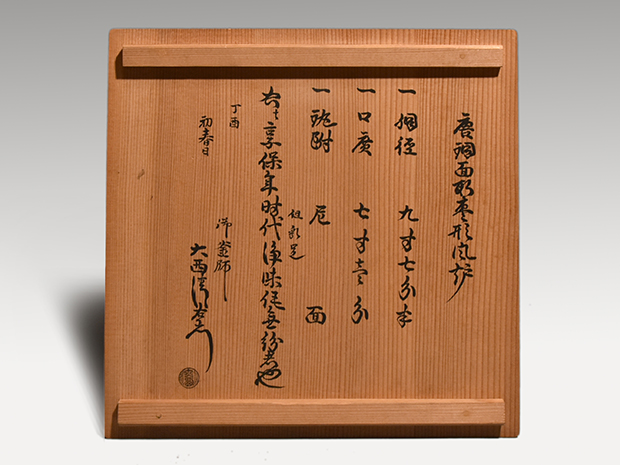 唐銅面取棗形風炉
一 胴径 九寸七分半
一 口廣 七寸壱分
一 鐶附 鬼面
但乳足
右者享保年時代浄味作無紛者也
丁酉
初春日
御釜師
大西清右衛門